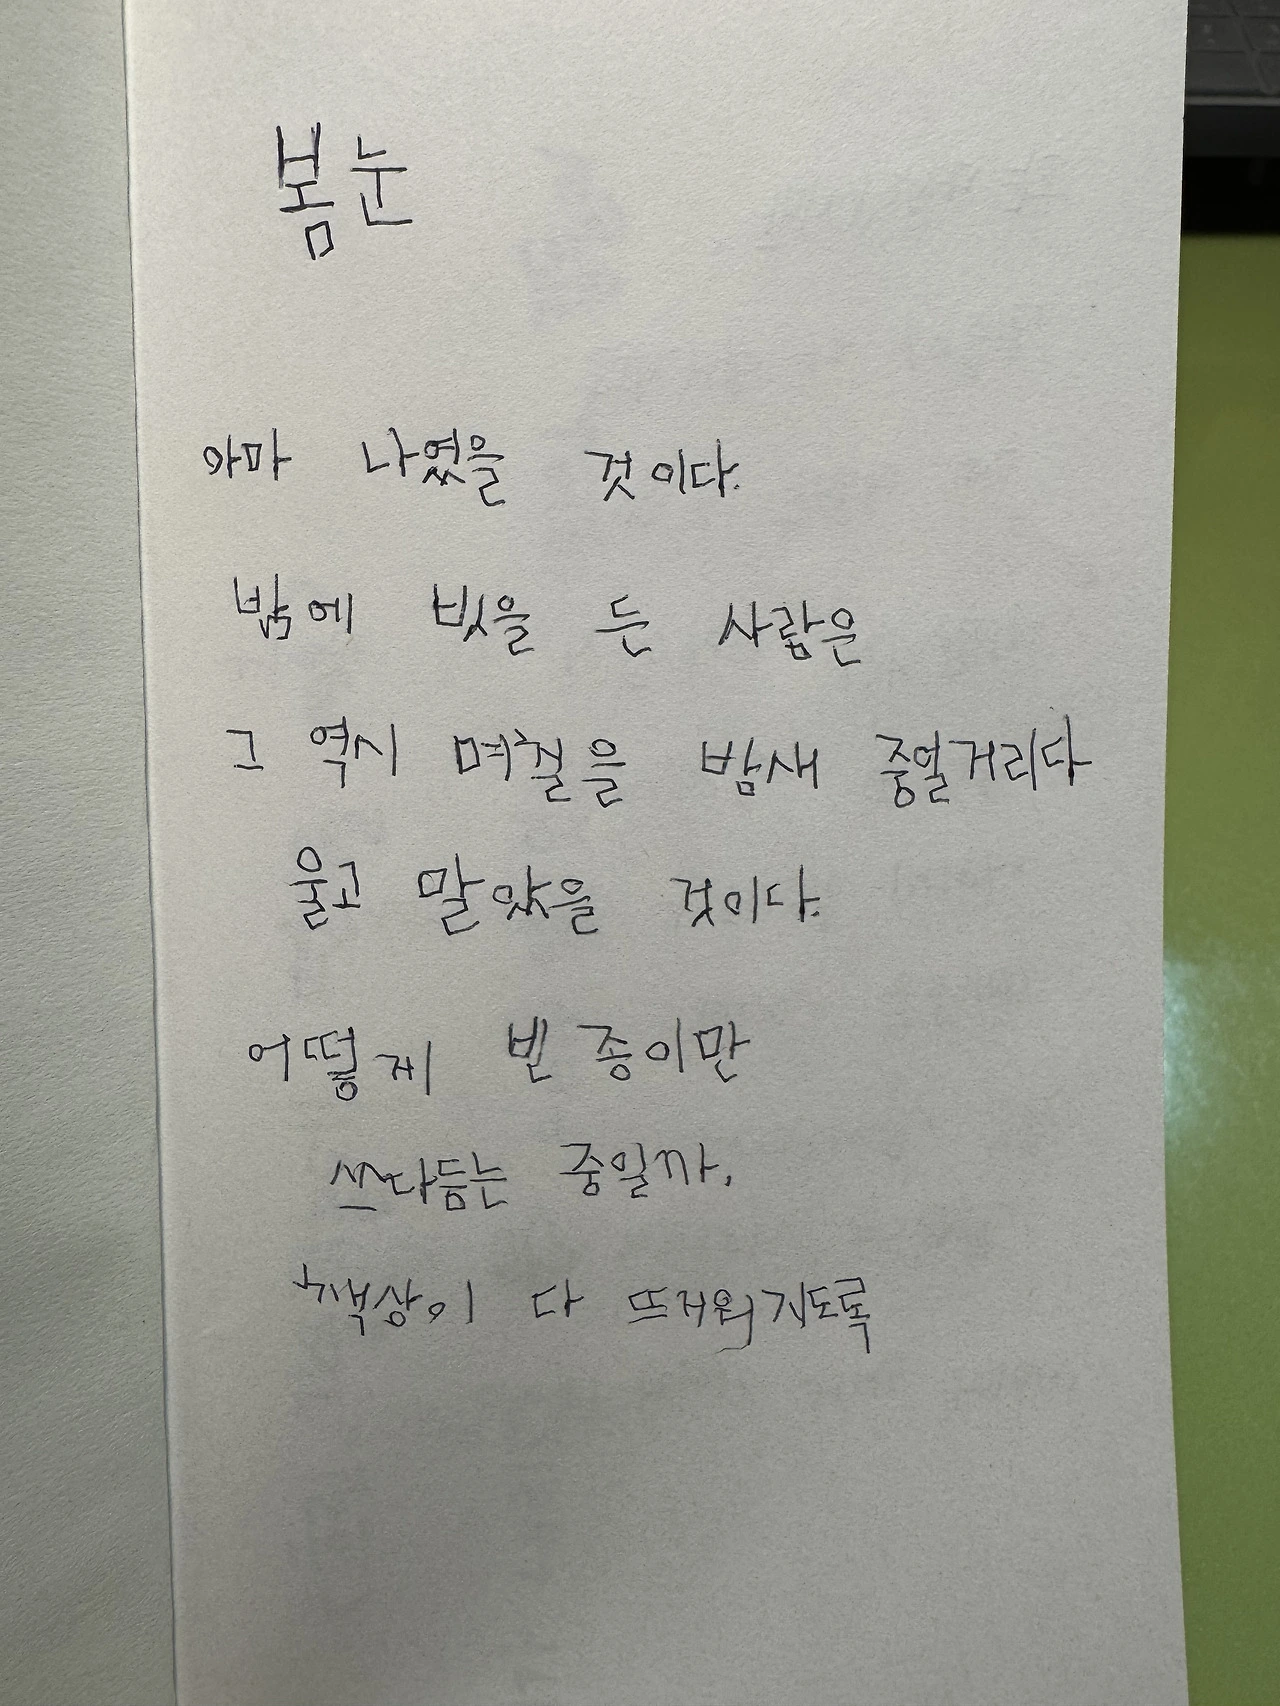 봄눈
아마 나였을 것이다.
밖에 빗을 든 사람은
그 역시 며칠을 밤새 중얼거리다
울고 말았을 것이다.
어떻게 빈 종이만
쓰다듬는 중일까,
책상이 다 뜨거워지도록